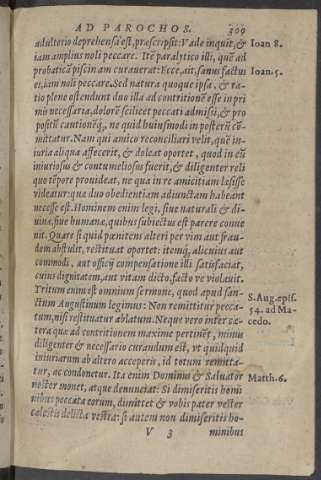 AD PAROCHOS. 309
adulterio deprehensa est, præscripsit: Vade inquit, & Ioan 8.
iam amplius noli peccare. Itē paralytico illi, quē ad
probaticā piscinam curauerat: Ecce, ait, sanus factus Ioan. 5.
es, iam noli peccare. Sed natura quoque ipsa, & ra-
tio plene ostendunt duo illa ad contritionē esse in pri
mis necessaria, dolorē scilicet peccati admissi, & pro
positū cautionēq́, ne quid huiusmodi in posterū cō-
mittatur. Nam qui amico reconciliari velit, quē in-
iuria aliqua affecerit, & doleat oportet, quod in eū
iniuriosus & contumeliosus fuerit, & diligenter reli
quo tēpore prouideat, ne qua in re amicitiam læsisse
videatur: quæ duo obedientiam adiunctam habeant
necesse est. Hominem enim legi, siue naturali & di-
uinæ, siue humanæ, quibus subiectus est parere conue
nit. Quare si quid pœnitens alteri per vim aut frau-
dem abstulit, restituat oportet: itemq́, alicuius aut
commodi, aut officij compensatione illi satisfaciat,
cuius dignitatem, aut vitam dicto, facto ve violauit.
Tritum enim est omnium sermone, quod apud san- S. Aug. epis.
ctum Augustinum legimus: Non remittitur pecca- 54. ad Ma-
tum, nisi restituatur ablatum. Neque vero inter cæ- cedo.
tera quæ ad contritionem maxime pertinēt, minus
diligenter & necessario curandum est, vt quidquid
iniuriarum ab altero acceperis, id totum remitta-
tur, ac condonetur. Ita enim Dominus & Saluator Matth. 6.
noster monet, atque denunciat: Si dimiseritis homi
nibus peccata eorum, dimittet & vobis pater vester
cælestis delicta vestra: si autem non dimiseritis ho-
V 3 minibus